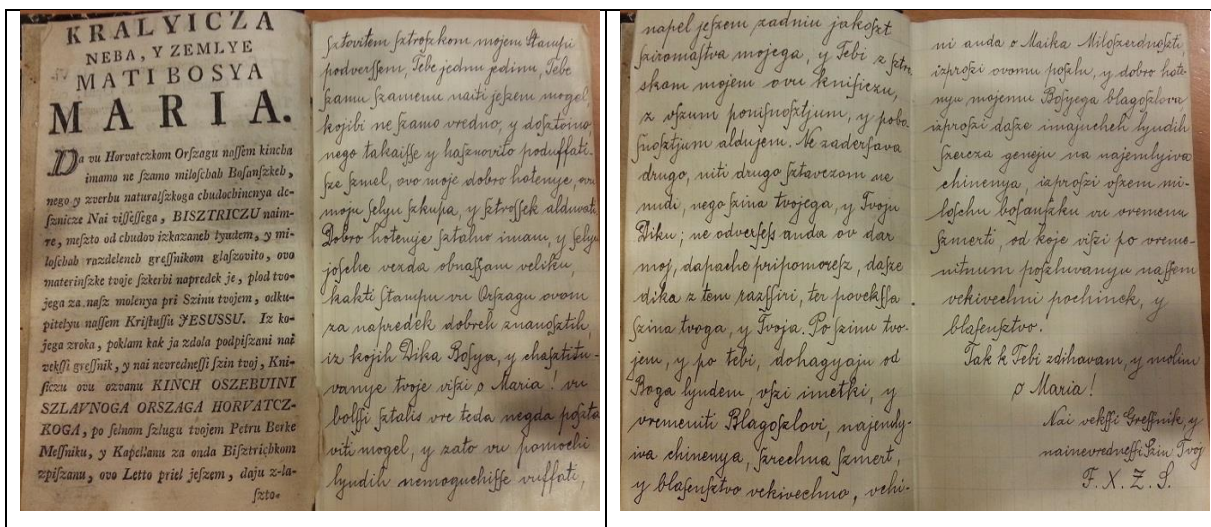 KRALYICZA
NEBA, Y ZEMLYE
MATI BOSYA
MARIA.
Da vu Horvatczkom Orſzagu naſſem kincha
imamo ne ſzamo miloſchah Boſanſzkeh,
nego y zverhu naturalſzkoga chudochinenya de-
ſznicze Nai viſſeſſega, BISZTRICZU naim-
re, meſzto od chudov izkazaneh lyudem, y mi-
loſchah razdeleneh greſſnikom glaſzovito, ovo
materinſzke tvoje ſzkerbi napredek je, plod tvo-
jega za naſz molenya pri Szinu tvojem, odku-
pitelyu naſſem Kriſtuſſu JESUSSU. Iz ko-
jega zroka, poklam kak ja zdola podpiſzani nai
vekſſi greſſnik, y nai nevredneſſi ſzin tvoj, Kni-
ſiczu ovu ozvanu KINCH OSZEBUINI
SZLAVNOGA ORSZAGA HORVATCZ-
KOGA, po ſelnom ſzlugu tvojem Petru Berke
Meſſniku, y Kapellanu za onda Biſztrichkom
zpiſzanu, ovo Letto priel jeſzem, daju z-la-
ſzto-
ſztovitem ſztroſzkom mojem Stampi
podverſſem, Tebe jednu jedinu, Tebe
ſzamu ſzamenu naiti jeſzem mogel,
kojibi ne ſzamo vredno, y doſztoino,
nego takaiſſe y haſznovito poduffati-
ſze ſzmel, ovo moje dobro hotenye, ovu
moju ſelyu ſzkupa, y ſztroſſek alduvati.
Dobro hotenye ſztalno imam, y ſelyu
joſche vezda obnaſſam veliku,
kakti Stampu vu Orſzagu ovom
za napredek dobreh znanoſztih,
iz kojih Dika Boſya, y chaſztitu-
vanye tvoje viſzi o Maria! vu
bolſſi ſztalis vre teda negda poſzta
viti mogel, y zato vu pomochi
lyudih nemoguchiſſe vuffati,
napel jeſzem zadniu jakoſzt
ſziromaſtva mojega, y Tebi z ſztro-
skom mojem ovu kniſiczu,
z vſzum poniſnoſztjum, y pobo-
ſnoſztjum aldujem. Ne zaderſava
drugo, niti drugo ſztavezom ne
nudi, nego ſzina tvojega, y Tvoju
Diku; ne odverſeſs anda ov dar
moj, dapache pripomoreſz, daſze
dika z tem razſſiri, ter povekſſa
ſzina tvoga, y Tvoja. Po ſzinu tvo-
jem, y po tebi, dohagyaju od
Boga lyudem, vſzi imetki, y
vremeniti Blagoſzlovi, najemly-
iva chinenya, ſzrechna ſzmert,
y blaſenſztvo vekivechno, vchi-
ni anda o Maika Miloſzerdnoſzti
izproſzi ovomu poſzlu, y dobro hote-
nyu mojemu Boſyega blagoſzlova
izproſzi daſze imajucheh lyudih
ſzercza geneju na najemlyiva
chinenya, izproſzi vſzem mi-
loſchu boſanſzku vu vremenu
ſzmerti, od koje viſzi po vreme-
nitnum poſzluvanyu naſſem
vekivechni pochinek, y
blaſenſztvo.
Tak k Tebi zdihavam, y molim
o Maria!
Nai vekſſi Greſſnik, y
nainevredneſſi Szin Tvoj
F. X. Z. S.